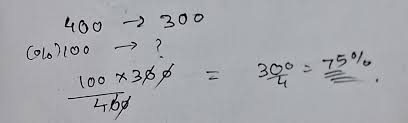 400 → 300
(%) 100 → ?
100 × 300 / 400 = 300/4 = 75%.